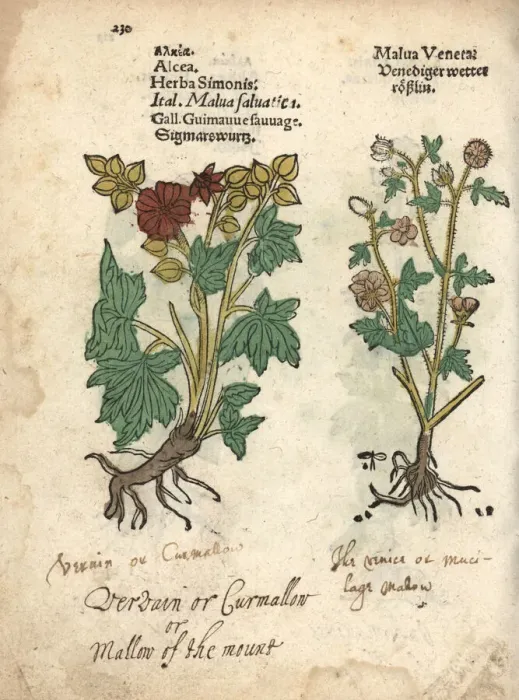 230
Αλκέα.
Alcea.
Herba Simonis.
Ital. Malua saluatic1.
Gall. Guimauue sauuage.
Sigmarswurtz.
Malua Veneta:
Venediger wetter
rößlin.
Vervain or Curmallow
Vervain or Curmallow
or
Mallow of the mount
The venice or muci-
lage Malow